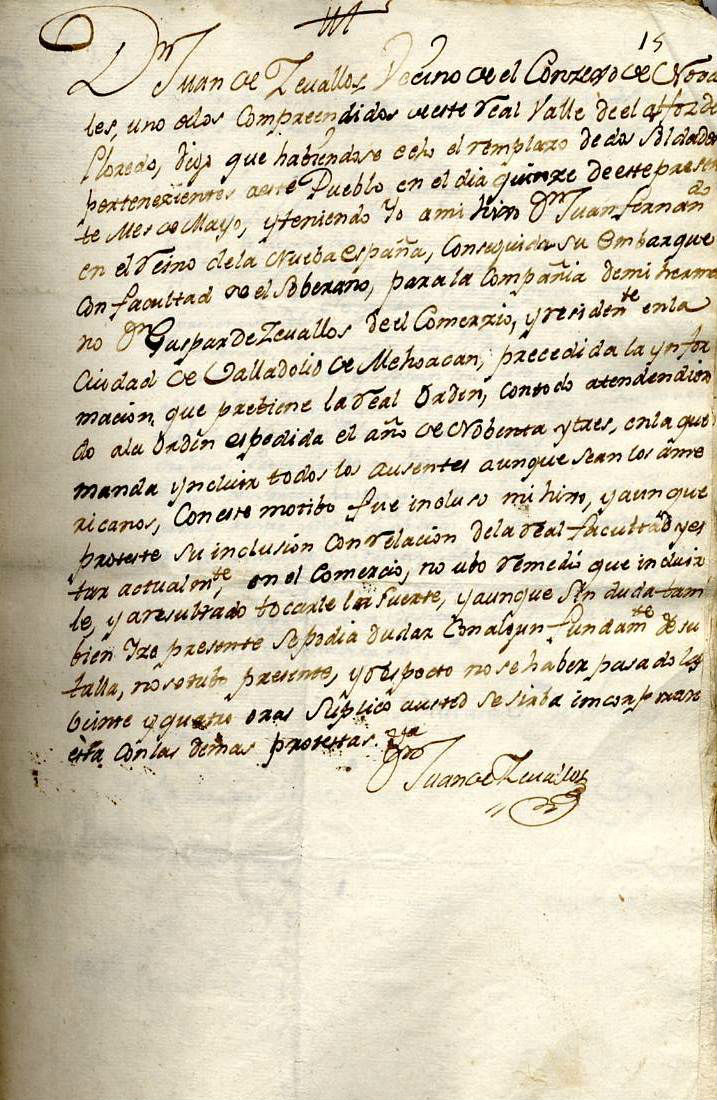 15
Dn Juan de Zevallos Vecino de el Conzejo de Nova
les, uno de los Compreendidos de este Real Valle de el alfoz de
Lloredo, digo que habiendose echo el remplazo de dos Soldados
pertenezientes a este Pueblo en el dia quinze de este presen
te Mes de Mayo, y teniendo Yo a mi hijo Dn Juan fernando
en el Reino de la Nueba España, Conseguida su Embarque
con facultad de el Soberano, para la Compañia de mi herma
no Dn Gaspar de Zevallos de el Comerzio, y residente en la
Ciudad de Valladolid de Mehoacan, precedida la ynfor
macion, que prebiene la Real Orden, con todo atendiendien
do a la Orden espedida el año de Nobenta y tres, en la que
manda yncluir todos los ausentes aunque sean los ame
ricanos, Con este motibo fue incluso mi hijo, y aunque
proteste su inclusión con relacion de la Real facultad y es
tar actualmte, en el Comercio, no ubo remedio que incluir
le, y a resultado tocarle la Suerte, y aunque sin duda tam
bien presente se podia dudar con algun fundamte de su
talla, no se tubo presente, y respecto no se haber pasado las
beinte y quatro oras Suplico a usted se sirba imcorporar
esta con las demas protestas.
Juan de Zevallos